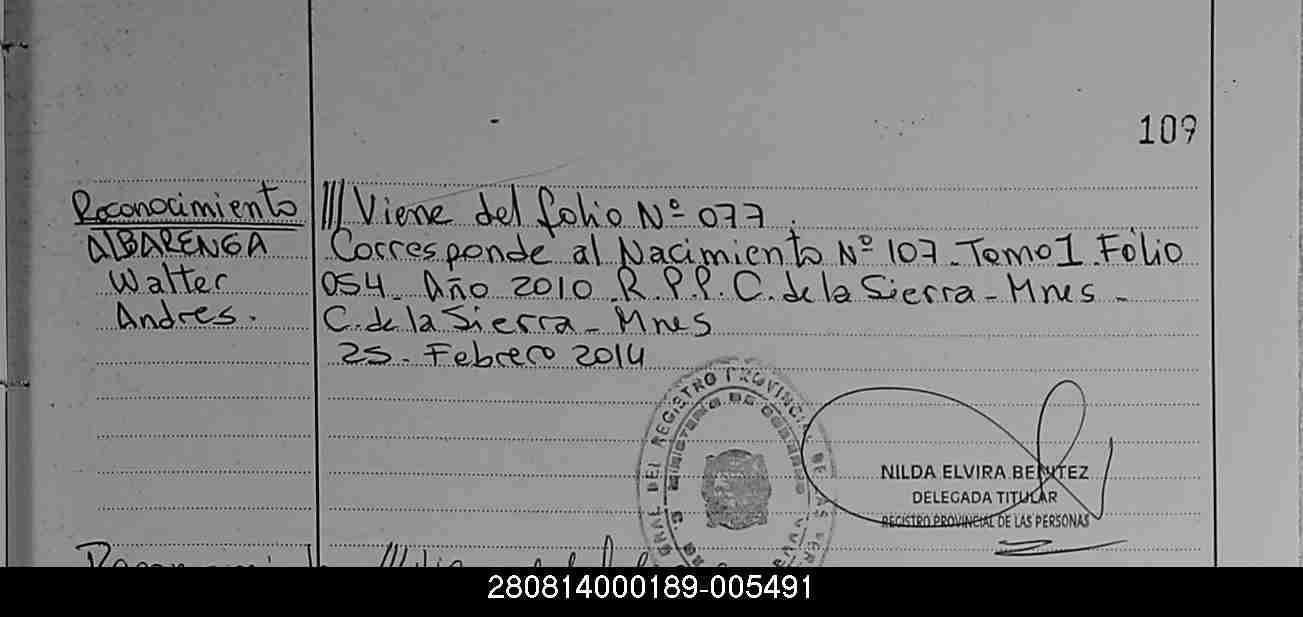 109
Reconocimiento
ALBARENGA
Walter
Andres.
/// Viene del folio Nº 077.
Corresponde al Nacimiento Nº 107. Tomo 1. Folio
054. Año 2010. R.P.P. C. de la Sierra - Mnes -
C. de la Sierra - Mnes
25. Febrero 2014
REGISTRO PROVINCIAL DE LAS
MINISTERIO DE GOBIERNO
NILDA ELVIRA BENITEZ
DELEGADA TITULAR
REGISTRO PROVINCIAL DE LAS PERSONAS
280814000189-005491